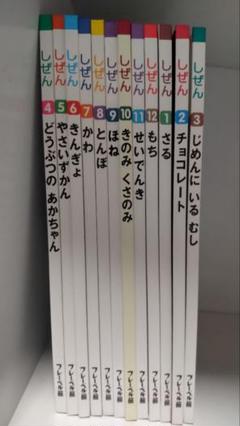 しぜん 4 どうぶつの あかちゃん フレーベル館
しぜん 5 やさいずかん フレーベル館
しぜん 6 きんぎょ フレーベル館
しぜん 7 かわ フレーベル館
しぜん 8 とんぼ フレーベル館
しぜん 9 ほね フレーベル館
しぜん 10 きのみ くさのみ フレーベル館
しぜん 11 せいでんき フレーベル館
しぜん 12 もち フレーベル館
しぜん 1 さる フレーベル館
しぜん 2 チョコレート フレーベル館
しぜん 3 じめんに いる むし フレーベル館